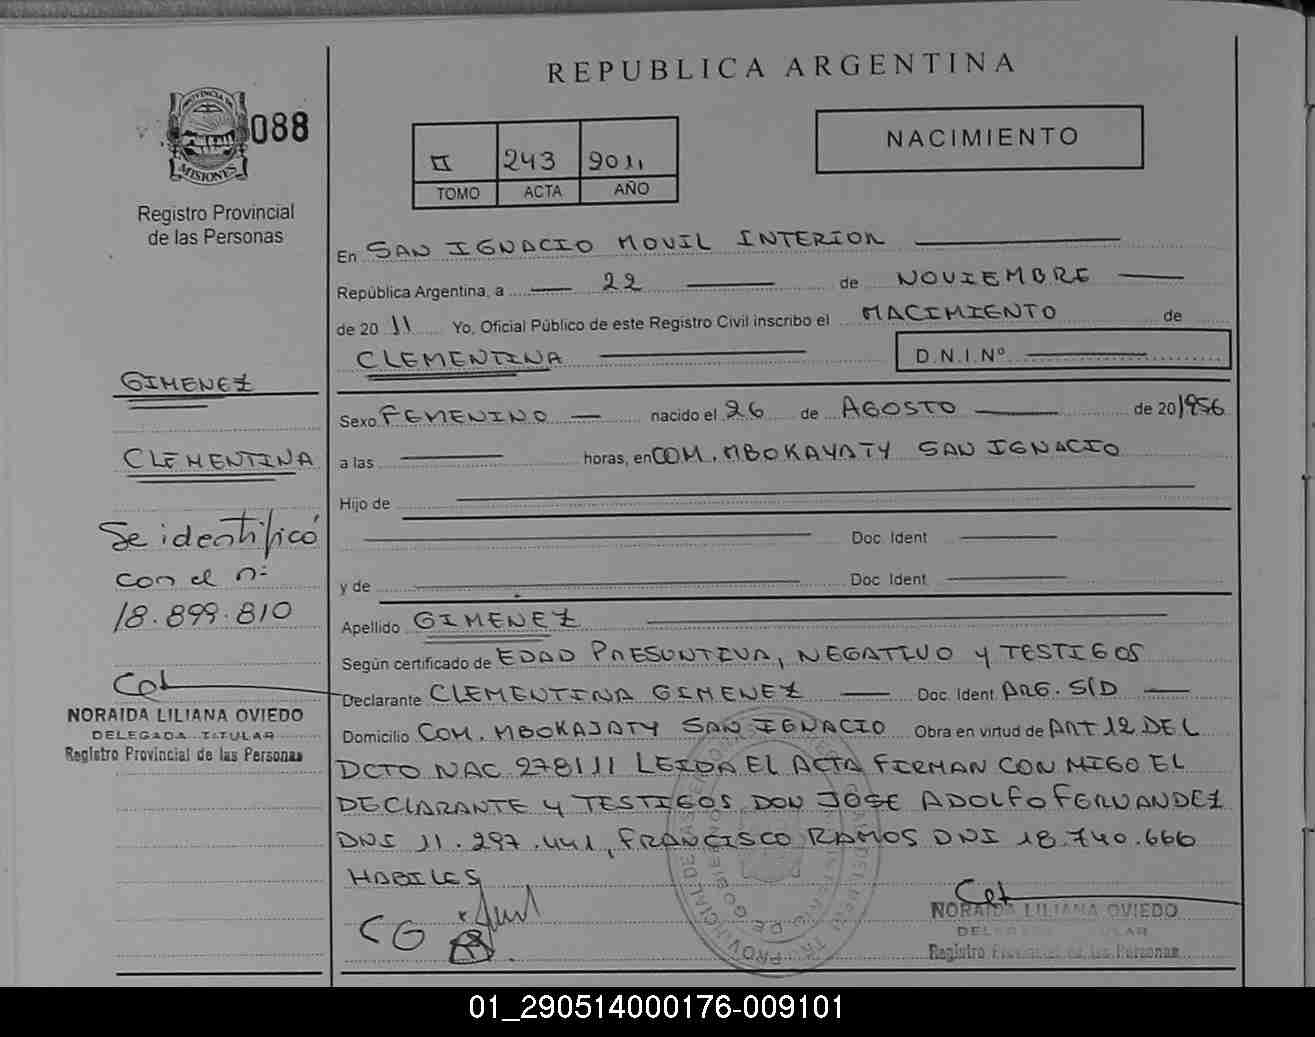 REPUBLICA ARGENTINA
PROVINCIA DE
MISIONES
088
Registro Provincial
de las Personas
II 243 2011
TOMO ACTA AÑO
NACIMIENTO
En SAN IGNACIO MOVIL INTERIOR
República Argentina, a 22 de NOVIEMBRE
de 20 11 Yo, Oficial Público de este Registro Civil inscribo el NACIMIENTO de
CLEMENTINA D.N.I.Nº
GIMENEZ
CLEMENTINA
Se identificó
con el nº
18.899.810
NORAIDA LILIANA OVIEDO
DELEGADA TITULAR
Registro Provincial de las Personas
Sexo FEMENINO nacido el 26 de AGOSTO de 20/1956
a las horas, en COM. MBOKAYATY SAN IGNACIO
Hijo de
Doc. Ident
y de Doc. Ident
Apellido GIMENEZ
Según certificado de EDAD PRESUNTIVA, NEGATIVO Y TESTIGOS
Declarante CLEMENTINA GIMENEZ Doc. Ident. ARG. S/D
Domicilio COM. MBOKAJATY SAN IGNACIO Obra en virtud de ART 12 DEL
DCTO NAC 278/11 LEIDA EL ACTA FIRMAN CONMIGO EL
DECLARANTE Y TESTIGOS DON JOSE ADOLFO FERNANDEZ
DNI 11.297.441, FRANCISCO RAMOS DNI 18.740.666
HABILES
CG
NORAIDA LILIANA OVIEDO
DELEGADA TITULAR
Registro Provincial de las Personas
01_290514000176-009101